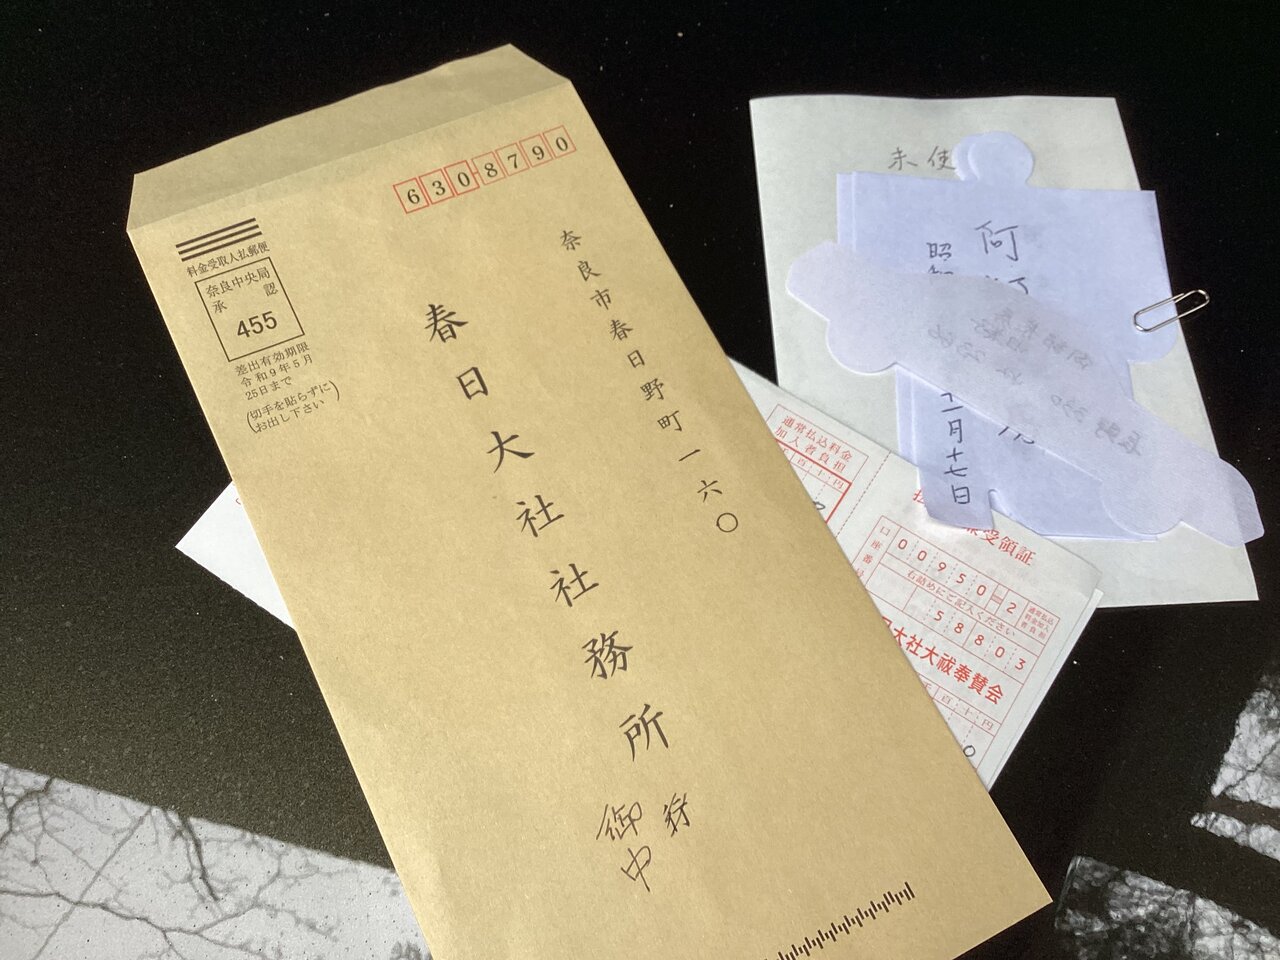 6308790
料金受取人払郵便
奈良中央局
承認
455
差出有効期限
令和9年5月
25日まで
(切手を貼らずに
お出し下さい)
奈良市春日野町一六〇
春日大社社務所
行
御中
未使
阿
昭和
一月十七日
通常払込料金
加入者負担
百十円
受領証
口座番
00950-2
通常払込
料金加入
者負担
右詰めにご記入ください
58803
日大社大祓奉賛会
千百十円
0